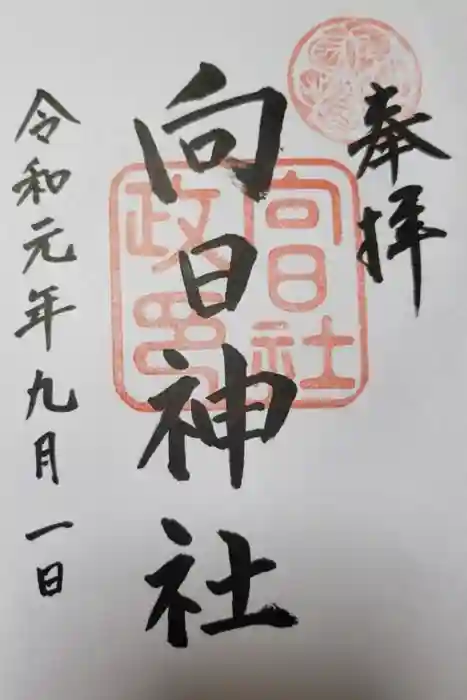 奉拝
向日神社
向日社
政所
令和元年九月一日